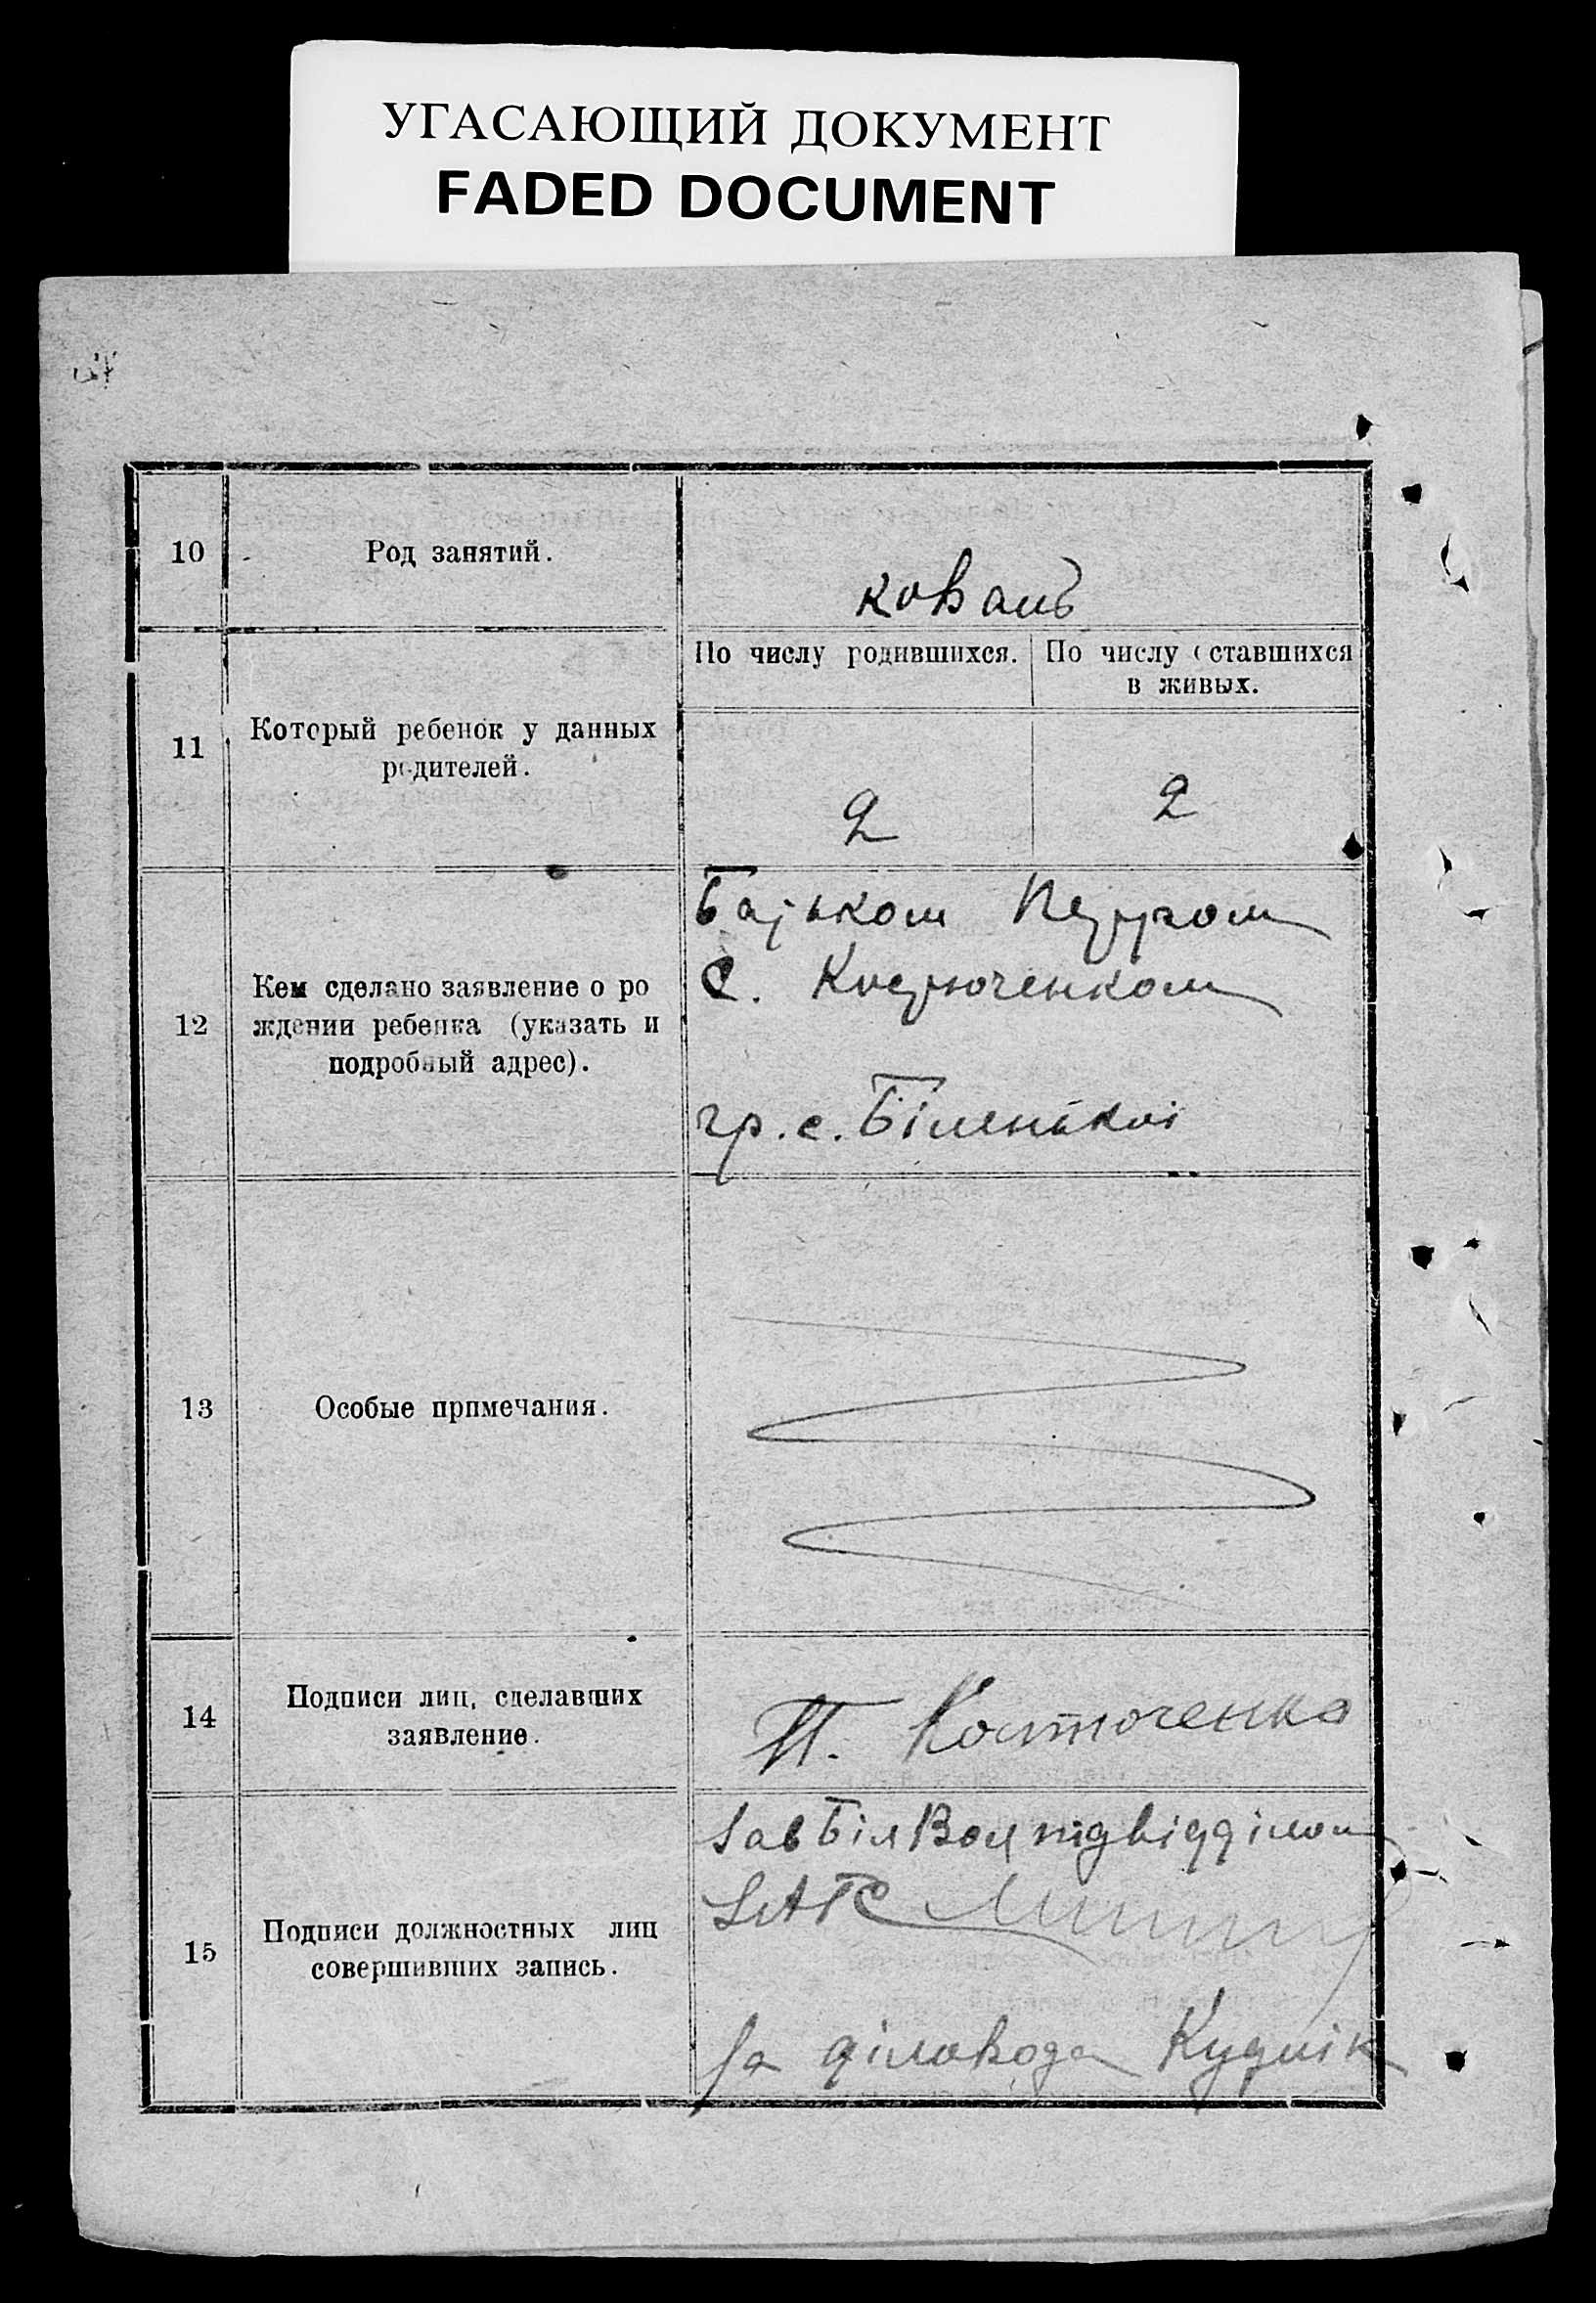 УГАСАЮЩИЙ ДОКУМЕНТ
FADED DOCUMENT
10
Род занятий.
коваль
11
Который ребенок у данных
родителей.
По числу родившихся.
По числу оставшихся
в живых.
2
2
12
Кем сделано заявление о ро
ждении ребенка (указать и
подробный адрес).
Батьком Петром
С. Костюченком
гр. с. Біленької
13
Особые примечания.
14
Подписи лиц, сделавших
заявление.
П. Костюченко
15
Подписи должностных лиц
совершивших запись.
Зав Біл Вол підвідділом
ЗАГС
За діловода